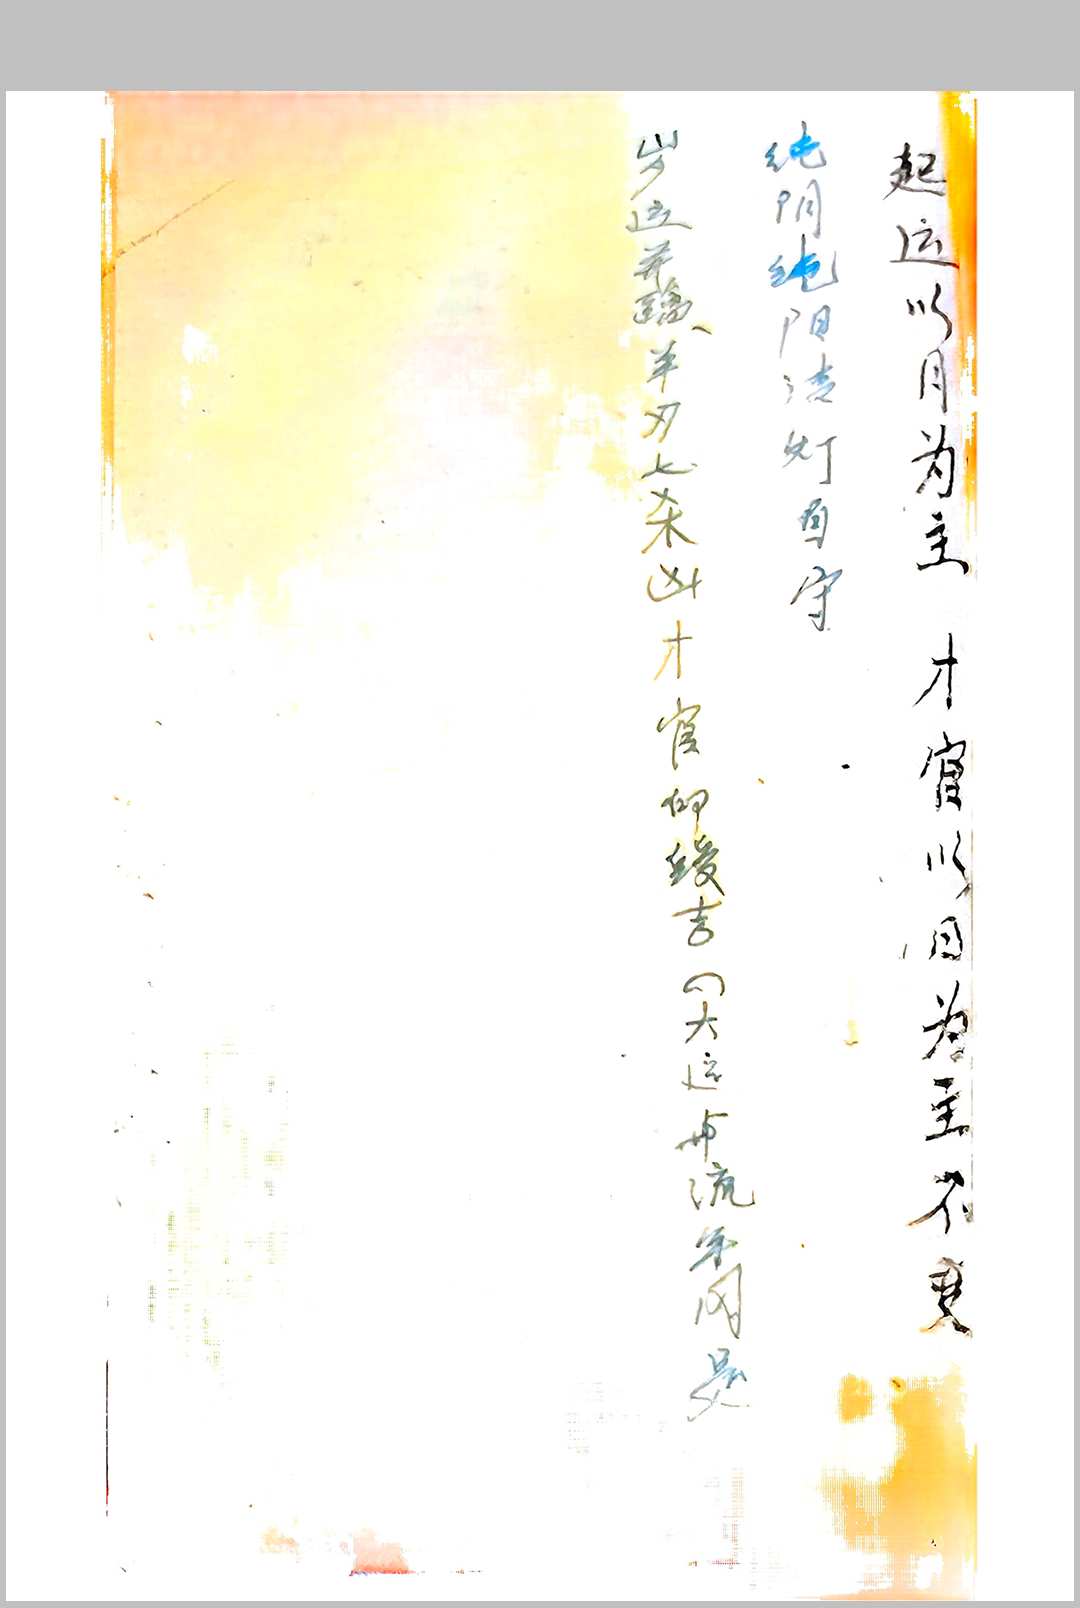 起运以月为主 才官以日为主不变
纯阴纯阳法灯自守
岁运并临羊刃七杀凶才官仰绶吉(大运与流年同是